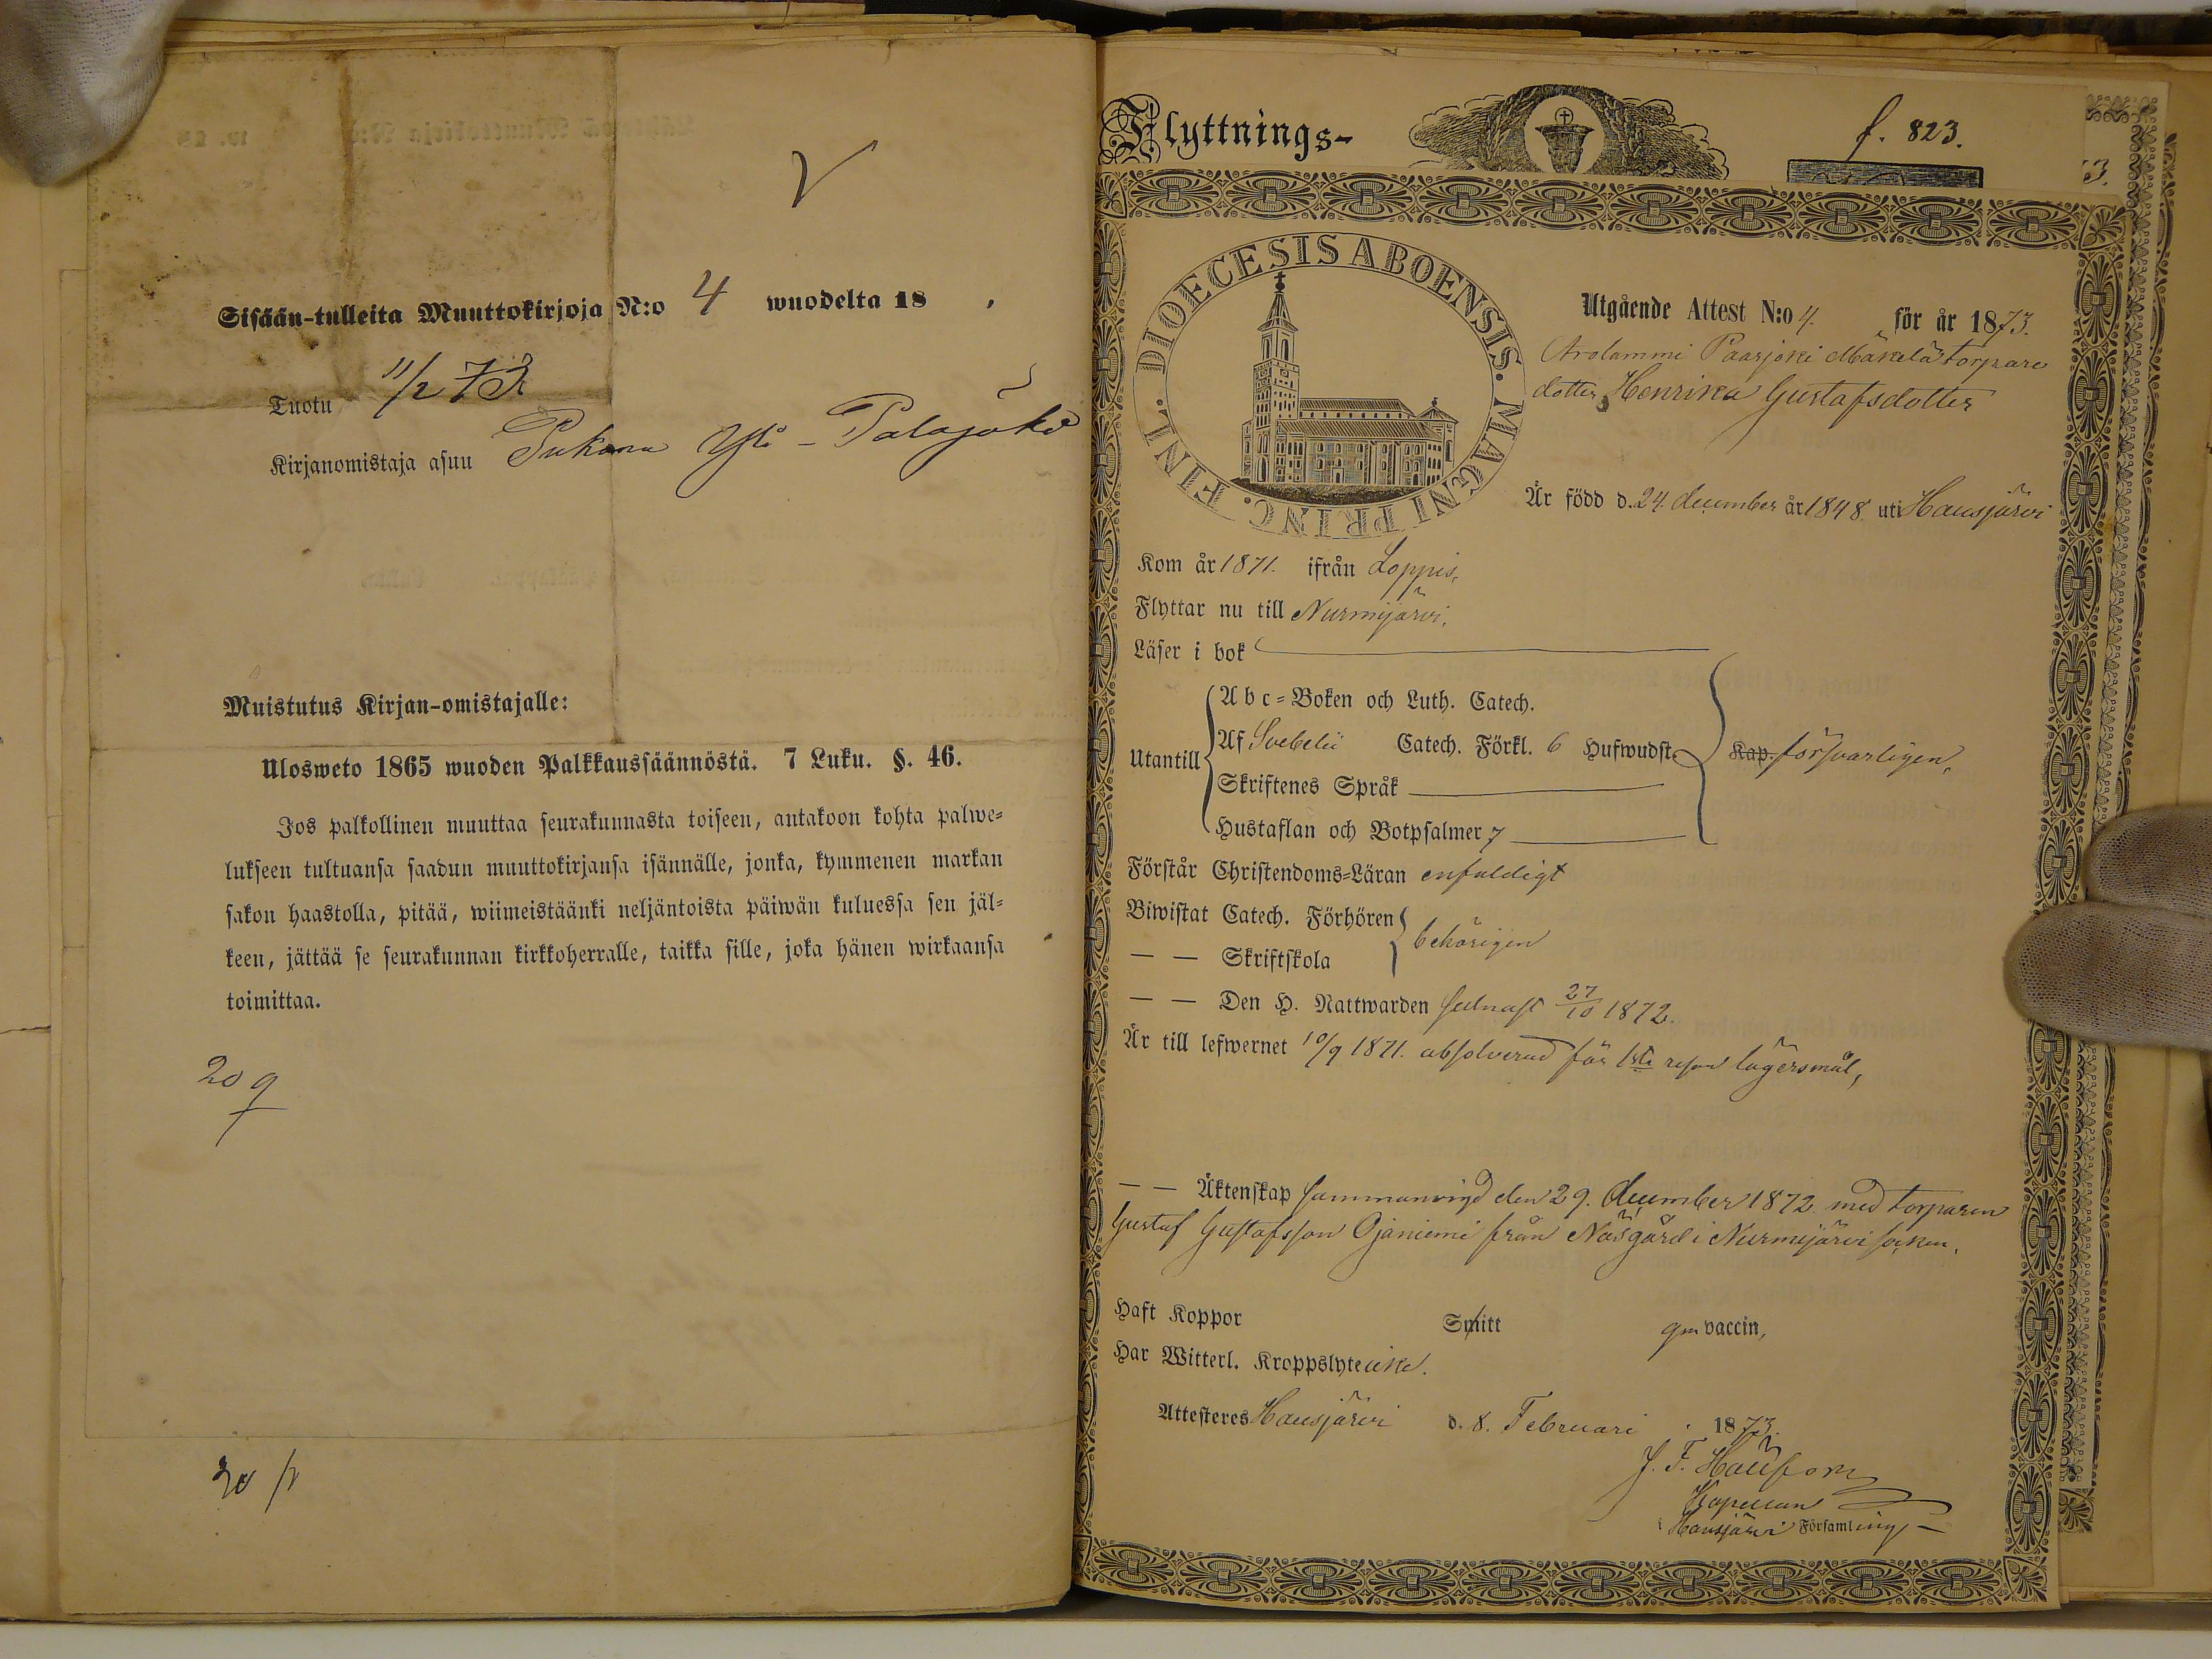 V
Sisään-tulleita Muuttokirjoja N:o 4 wuodelta 18 .
Tuotu 11/2 73
Kirjanomistaja asuu Yli-Palojoki
Muistutus Kirjan-omistajalle:
Ulosweto 1865 wuoden Palkkaussäännöstä. 7 Luku. §. 46.
Jos palkollinen muuttaa seurakunnasta toiseen, antakoon kohta palwe=
lukseen tultuansa saadun muuttokirjansa isännälle, jonka, kymmenen markan
sakon haastolla, pitää, wiimeistäänki neljäntoista päiwän kuluessa sen jäl=
keen, jättää se seurakunnan kirkkoherralle, taikka sille, joka hänen wirkaansa
toimittaa.
209
Flyttnings-
f. 823.
3.
DIOECESIS ABOENSIS. MAGNI PRINC. FINL.
Utgående Attest N:o 4. för år 1873.
Arolammi Paarjoki Mäkelä torpare
dotter Henrika Gustafsdotter
Är född d. 24. december år 1848 uti Hausjärvi
Kom år 1871. ifrån Loppis,
Flyttar nu till Nurmijärvi.
Läser i bok
Utantill
A b c=Boken och Luth. Catech.
Af Svebelii Catech. Förkl. 6 Hufwudst.
Kap. försvarligen,
Skriftenes Språk
Hustaflan och Botpsalmer 7
Förstår Christendoms=Läran enfaldigt
Biwistat Catech. Förhören
behörigen
— — Skriftskola
— — Den H. Nattwarden sednast 27/10 1872.
Är till lefwernet 10/9 1871. absolverad för 1sta resan lägersmål,
— — Äktenskap sammanvigd den 29. december 1872 med torparen
Gustaf Gustafsson Ojaniemi från Näs gård i Nurmijärvi socken.
Haft Koppor Smitt gm vaccin,
Har Witterl. Kroppslyte icke.
Attesteres Hausjärvi d. 8. Februari 1873.
J. F.
Kapellan
Hausjärvi Församling